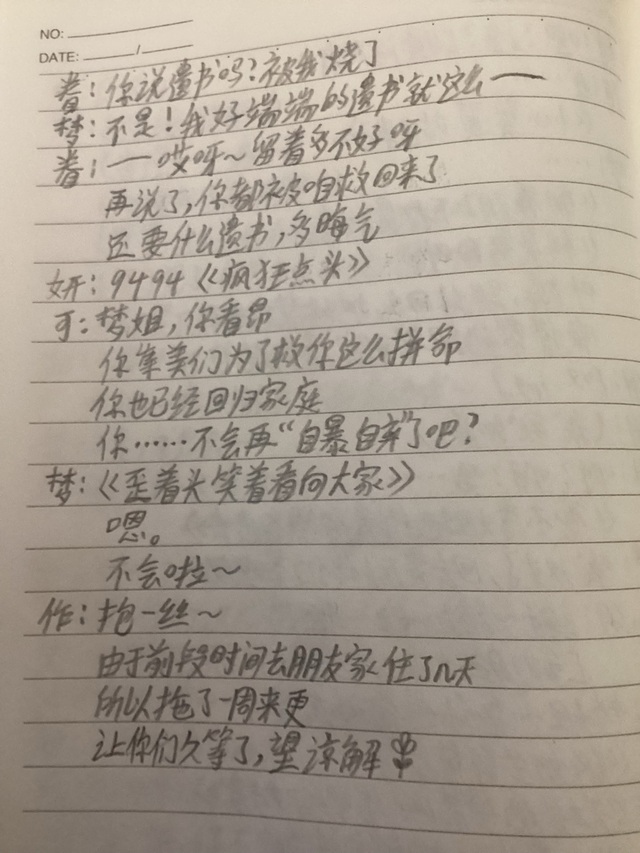 NO:
DATE: /
眷：你说遗书吗？被我烧了
梦：不是！我好端端的遗书就这么——
眷：——哎呀～留着多不好呀
再说了，你都被咱救回来了
还要什么遗书，多晦气
妍：9494《疯狂点头》
可：梦姐，你看昂
你集美们为了救你这么拼命
你也已经回归家庭
你……不会再“自暴自弃”了吧？
梦：《歪着头笑着看向大家》
嗯。
不会啦～
作：抱一丝～
由于前段时间去朋友家住了几天
所以拖了一周来更
让你们久等了，望谅解